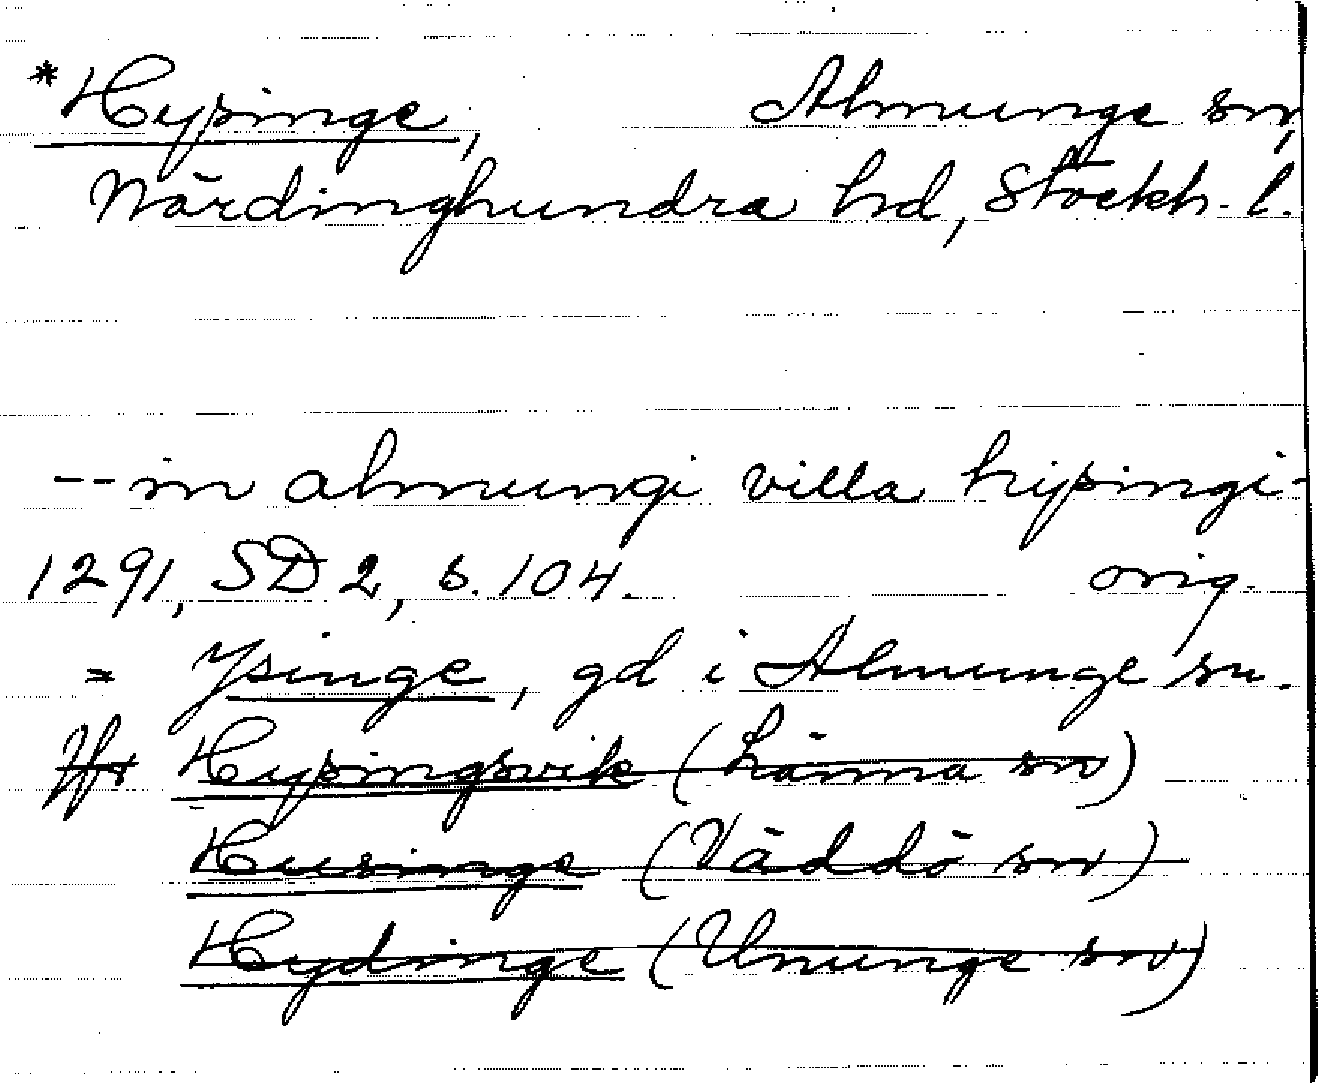 *Hypinge, Almunge sn,
Närdinghundra hd, Stockh. l.
-- in almungi villa hipingi -
1291, SD 2, s. 104. orig.
= Ysinge, gd i Almunge sn.
Jfr Hypingsvik (Länna sn)
Husinge (Väddö sn)
Hydinge (Ununge sn)